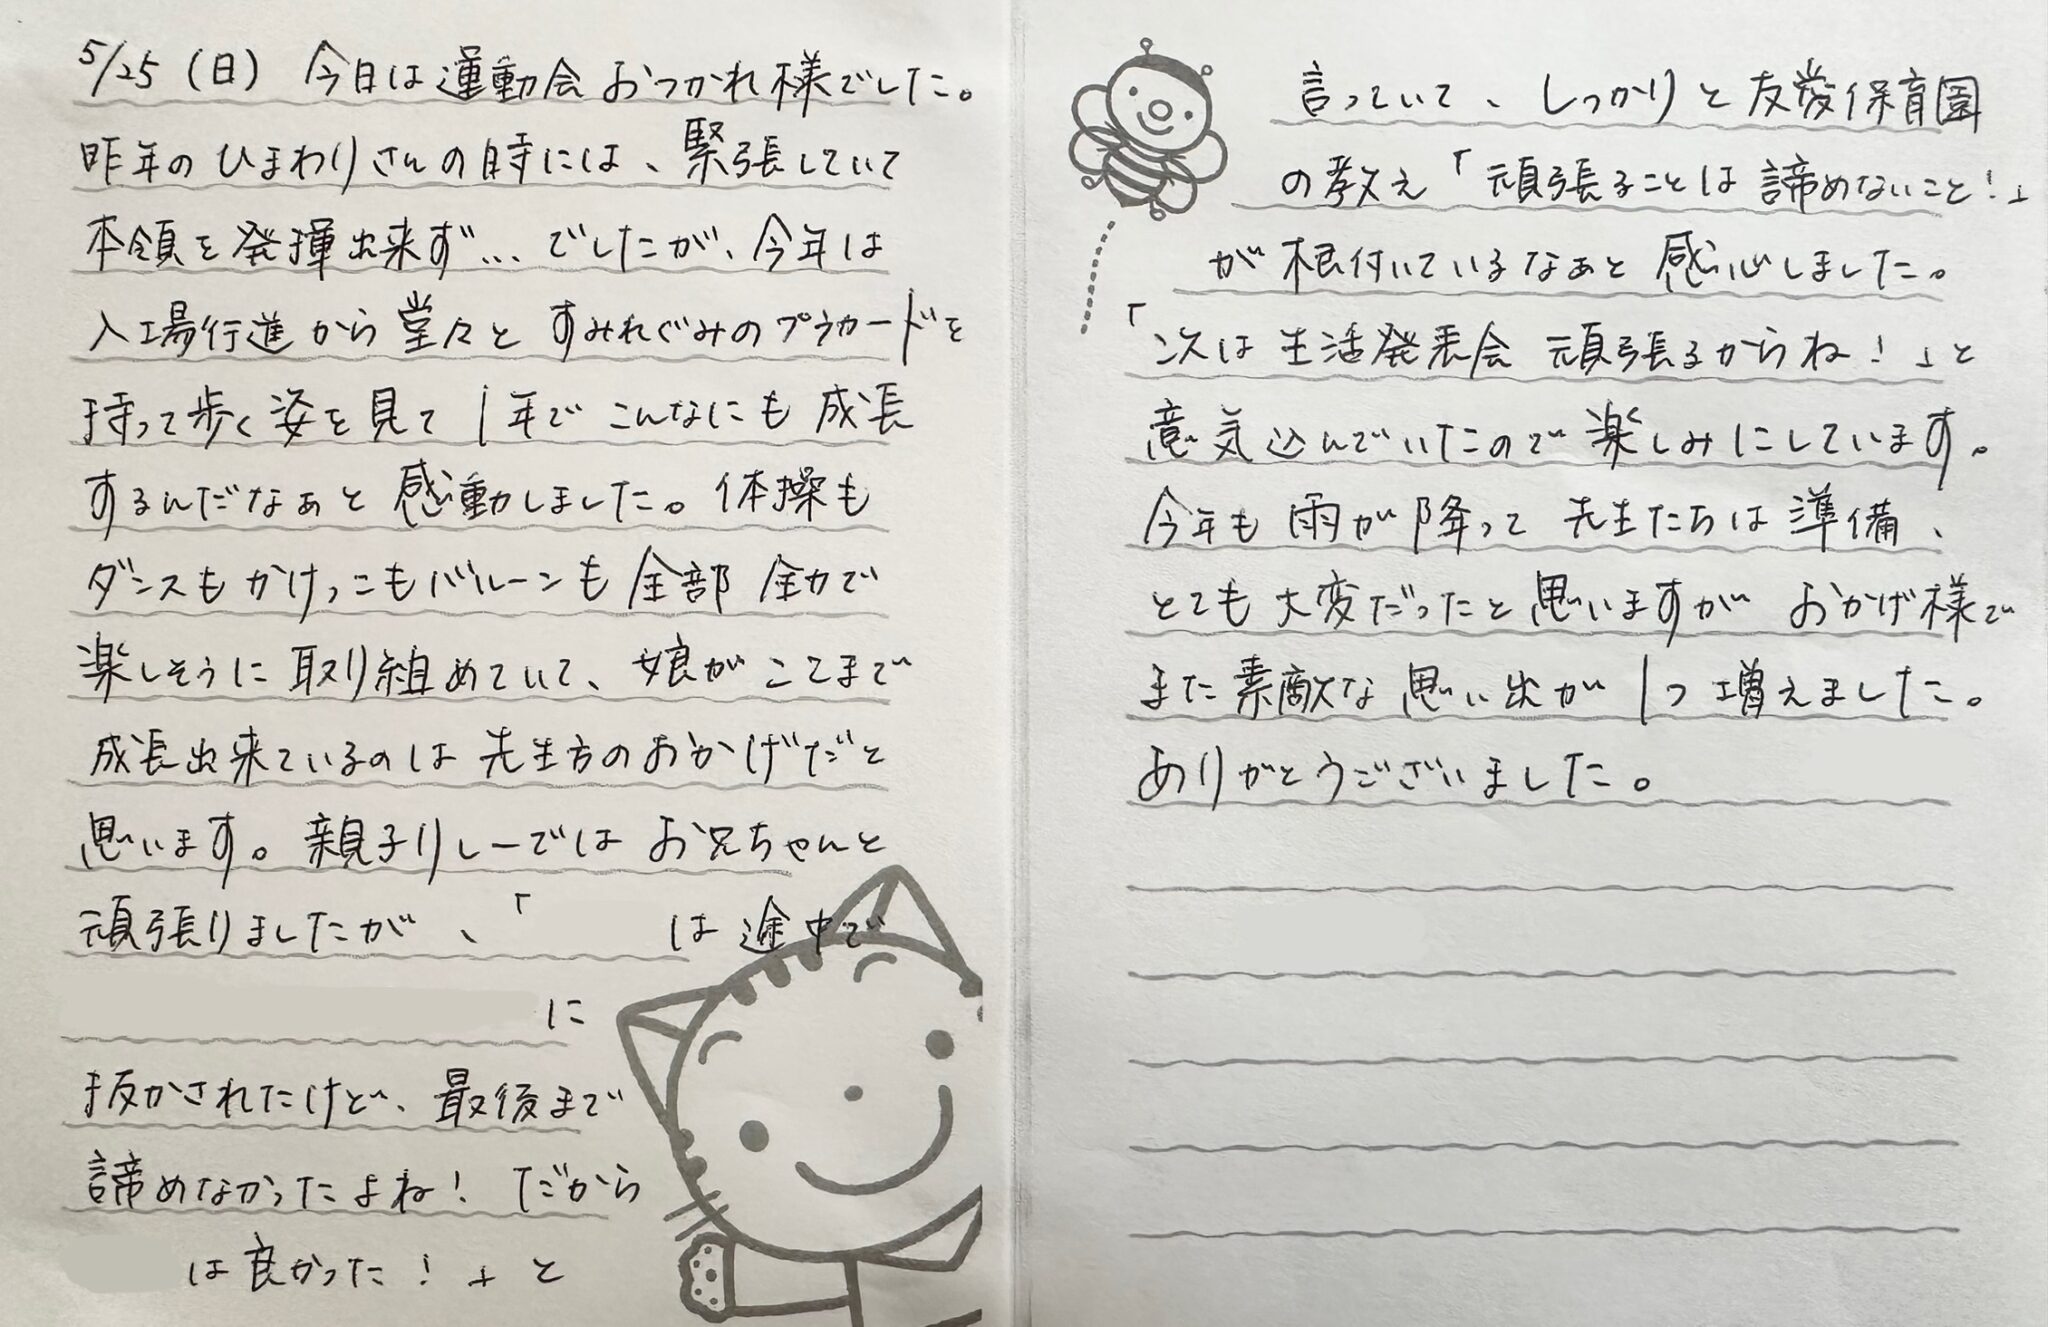 5/25（日） 今日は運動会おつかれ様でした。
昨年のひまわりさんの時には、緊張していて
本領を発揮出来ず…でしたが、今年は
入場行進から堂々とすみれぐみのプラカードを
持って歩く姿を見て1年でこんなにも成長
するんだなぁと感動しました。体操も
ダンスもかけっこもバルーンも全部全力で
楽しそうに取り組めていて、娘がここまで
成長出来ているのは先生方のおかげだと
思います。親子リレーではお兄ちゃんと
頑張りましたが、「 は途中で
に
抜かされたけど、最後まで
諦めなかったよね！だから
は良かった！」と
言っていて、しっかりと友愛保育園
の教え「頑張ることは諦めないこと！」
が根付いているなぁと感心しました。
「次は生活発表会頑張るからね！」と
意気込んでいたので楽しみにしています。
今年も雨が降って先生たちは準備、
とても大変だったと思いますがおかげ様で
また素敵な思い出が1つ増えました。
ありがとうございました。